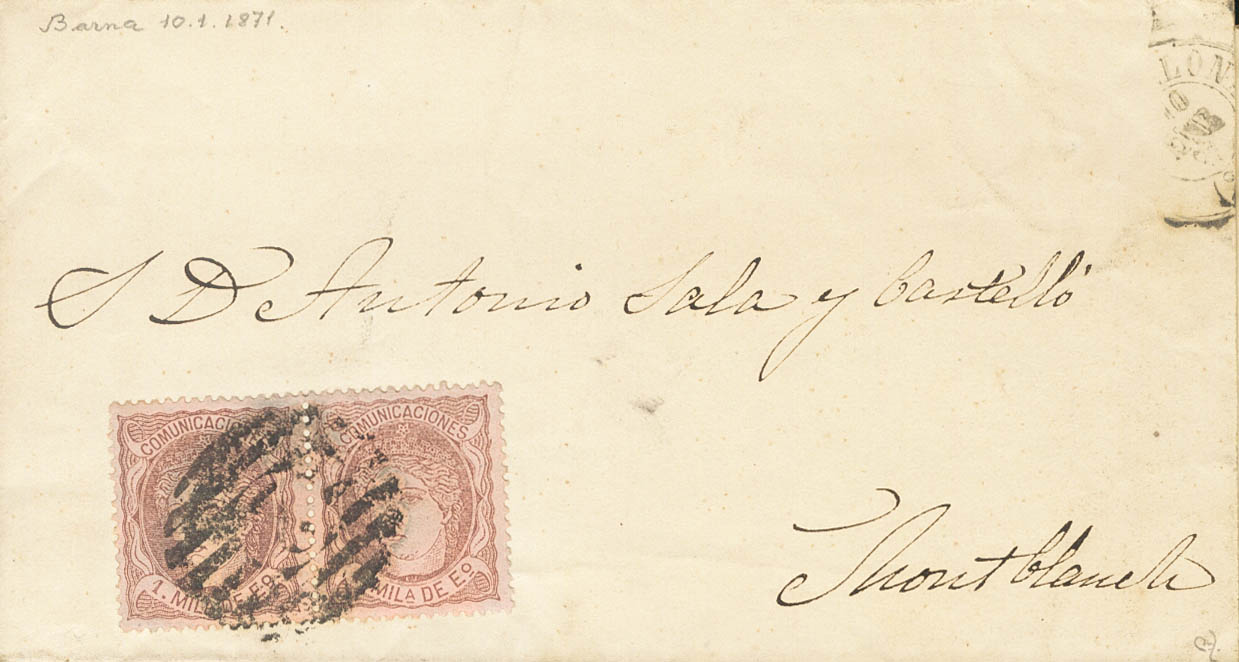 Barna 10.1.1871.
LONA
10
S D Antonio Sala y Castelló
COMUNICACIONES
COMUNICACIONES
1. MILA DE Eo.
MILA DE Eo.
Montblanch